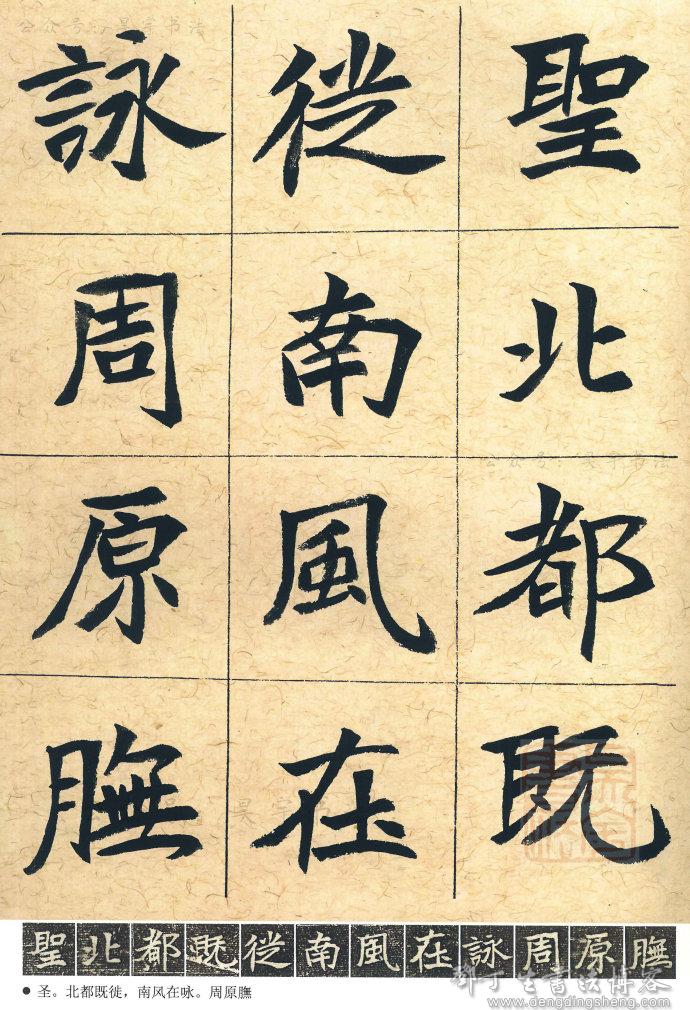 聖北都既
徙南風在
詠周原膴
聖北都既徙南風在詠周原膴
● 圣。北都既徙，南风在咏。周原膴
邓丁生书法博客
www.dengdingsheng.com
公众号